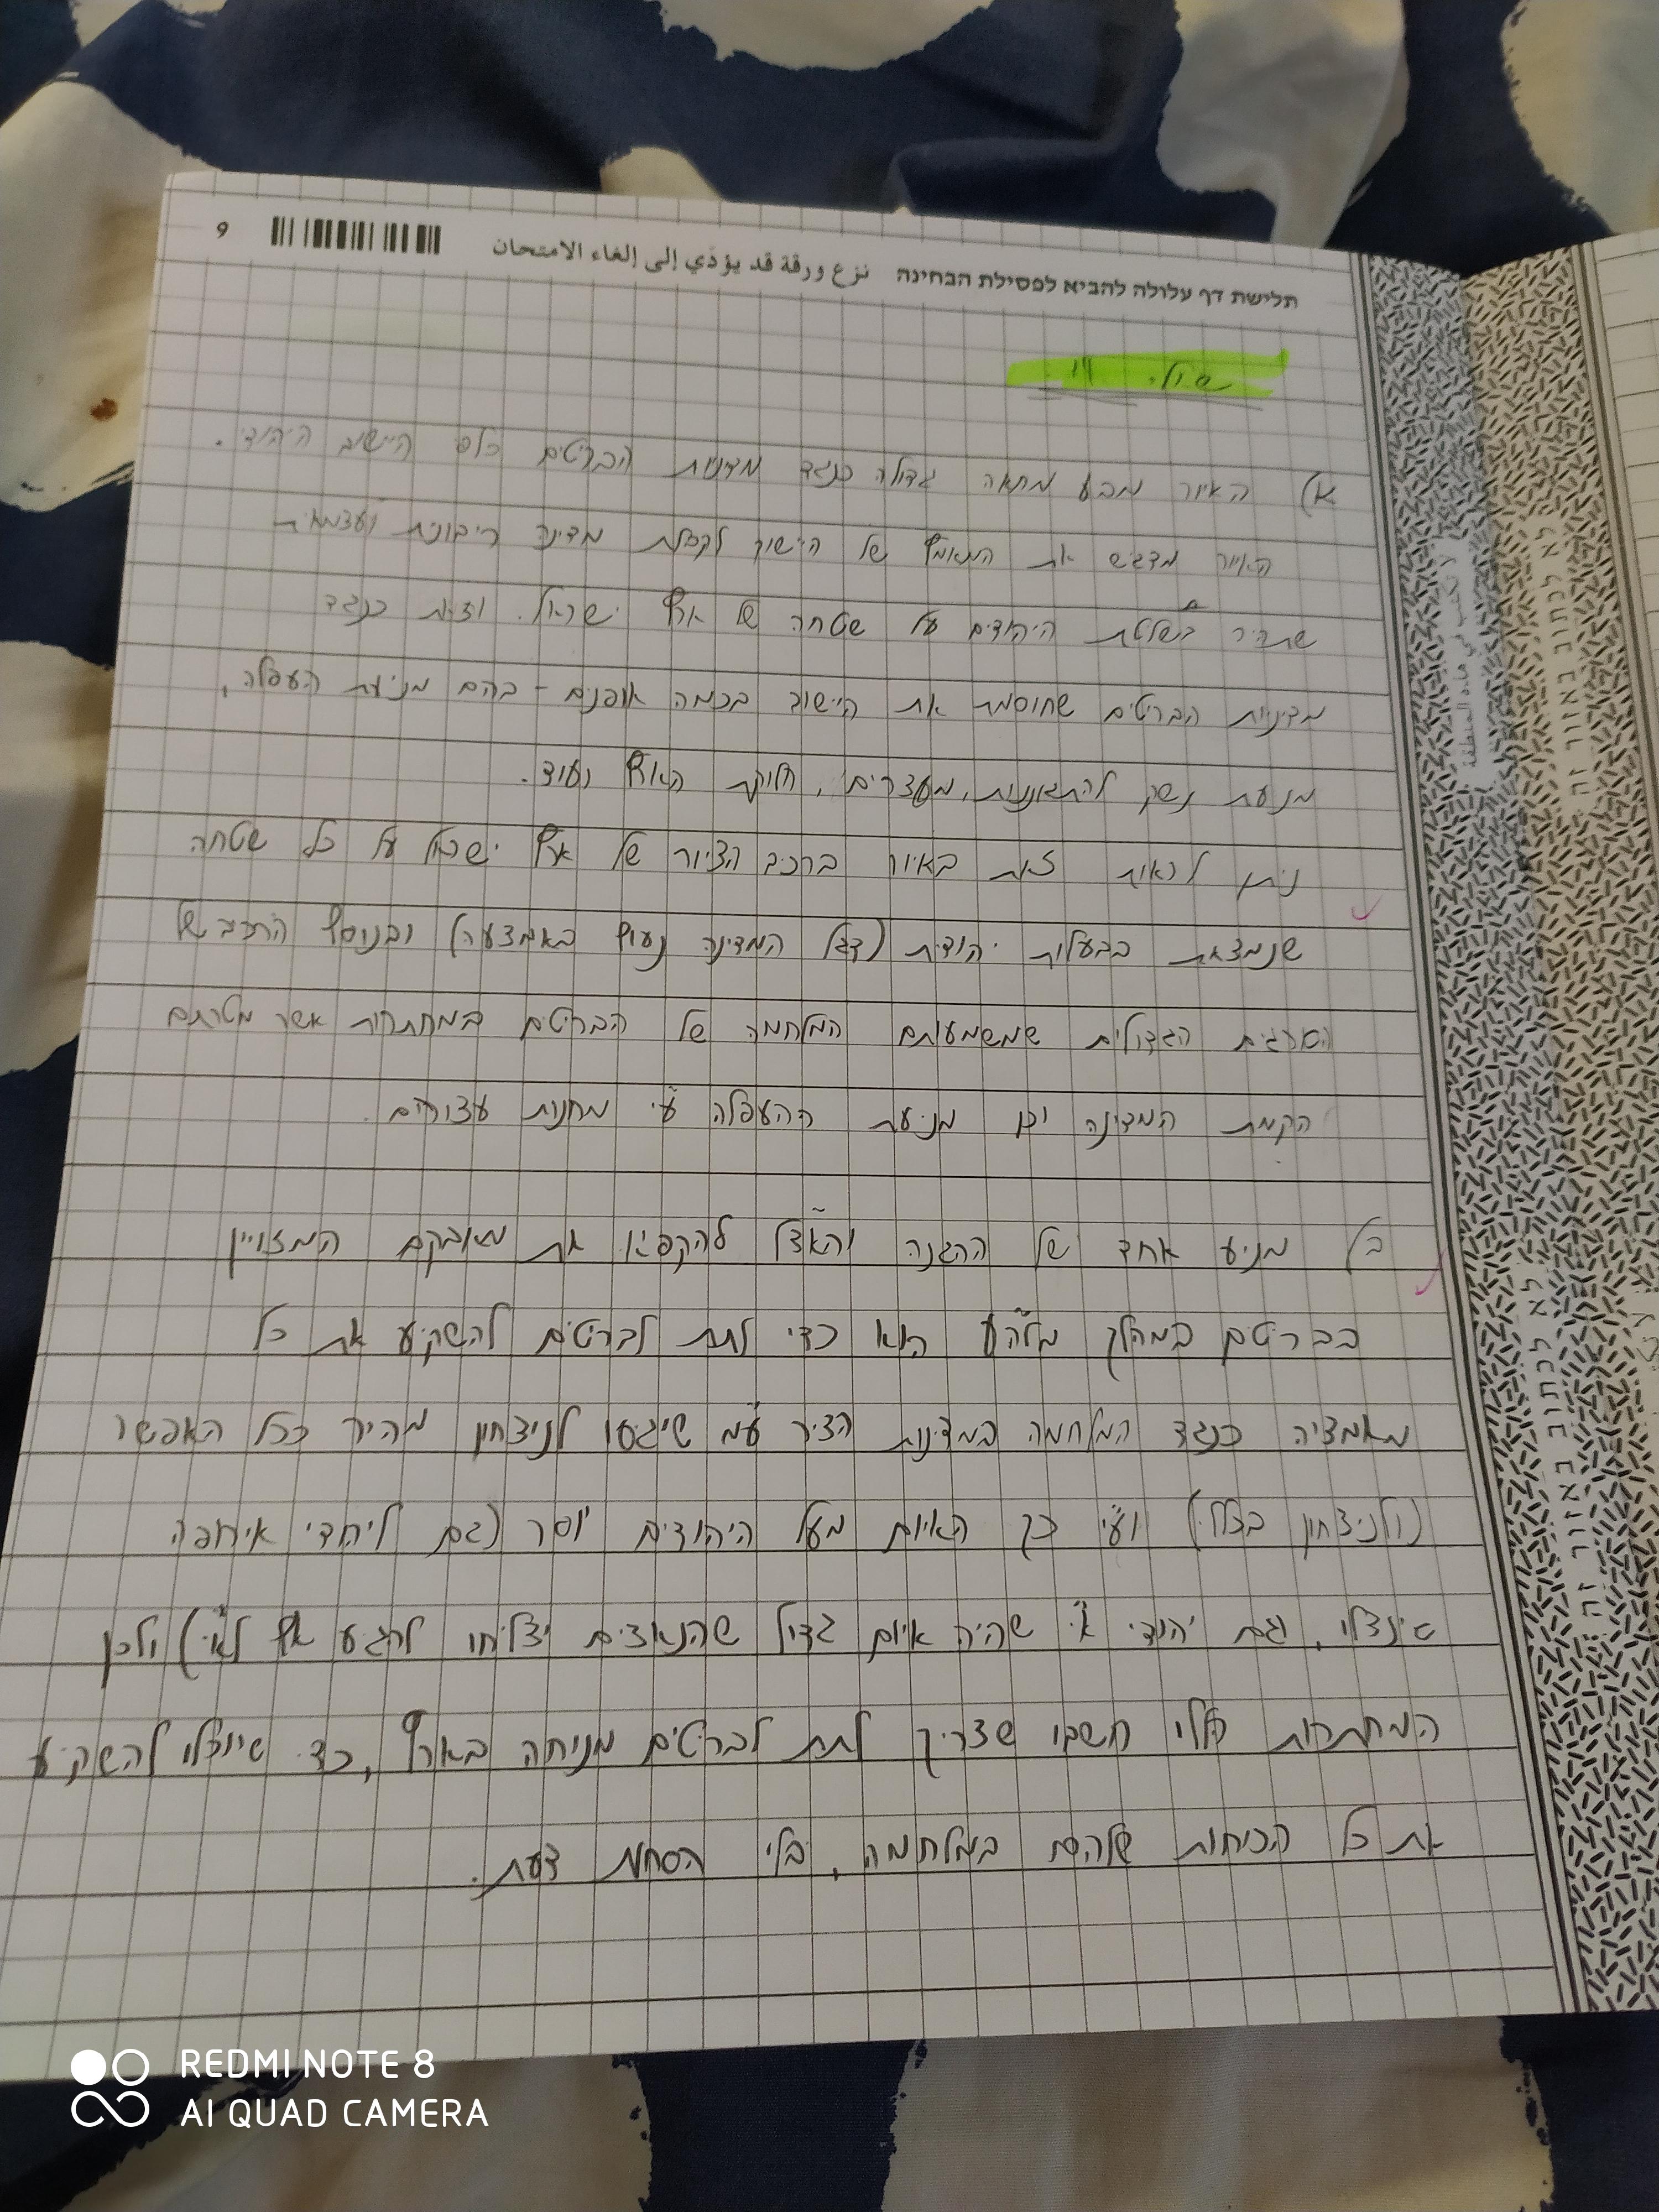 תלישת דף עלולה להביא לפסילת הבחינה نزع ورقة قد يؤدي إلى إلغاء الامتحان 9
א) האיור מביע מחאה גדולה כנגד מדיניות הבריטים כלפי היישוב היהודי.
האיור מדגיש את המאמץ של היישוב לקבלת מדינה ריבונית ועצמאית
בשליטת היהודים על שטחה של ארץ ישראל. וזאת כנגד
מדיניות הבריטים שחוסמת את היישוב בכמה אופנים - בהם מניעת העפלה,
מניעת נשק להתגוננות, מעצרים, חלוקת הארץ ועוד.
ניתן לראות זאת באיור ברכיב הציור של ארץ ישראל על כל שטחה
שנמצאת בבעלות יהודית (דגל המדינה נעוץ באמצעה) ובנוסף הרכיב של
הסורגים הגדולים שמשמעותם המלחמה של הבריטים במחתרות אשר מטרתם
הקמת המדינה וכן מניעת ההעפלה ע"י מחנות עצורים.
ב) מניע אחד של ההגנה והאצ"ל להקפיא את מאבקם המזויין
בבריטים במהלך מלה"ע הוא כדי לתת לבריטים להשקיע את כל
מאמציה כנגד המלחמה במדינות הציר ע"מ שיגיעו לניצחון מהיר ככל האפשר
(ולניצחון בכלל) וע"י כך האיום מעל היהודים יוסר (גם ליהודי אירופה
שינצלו, וגם יהודי א"י שהיה איום גדול שהנאצים יצליחו להגיע אף לא"י) ולכן
המחתרות הללו חשבו שצריך לתת לבריטים מניחה בארץ, כדי שיוכלו להשקיע
את כל הכוחות שלהם במלחמה, בלי הסחת דעת.
לא לכתוב באזור זה
לא לכתוב באזור זה
REDMI NOTE 8
AI QUAD CAMERA